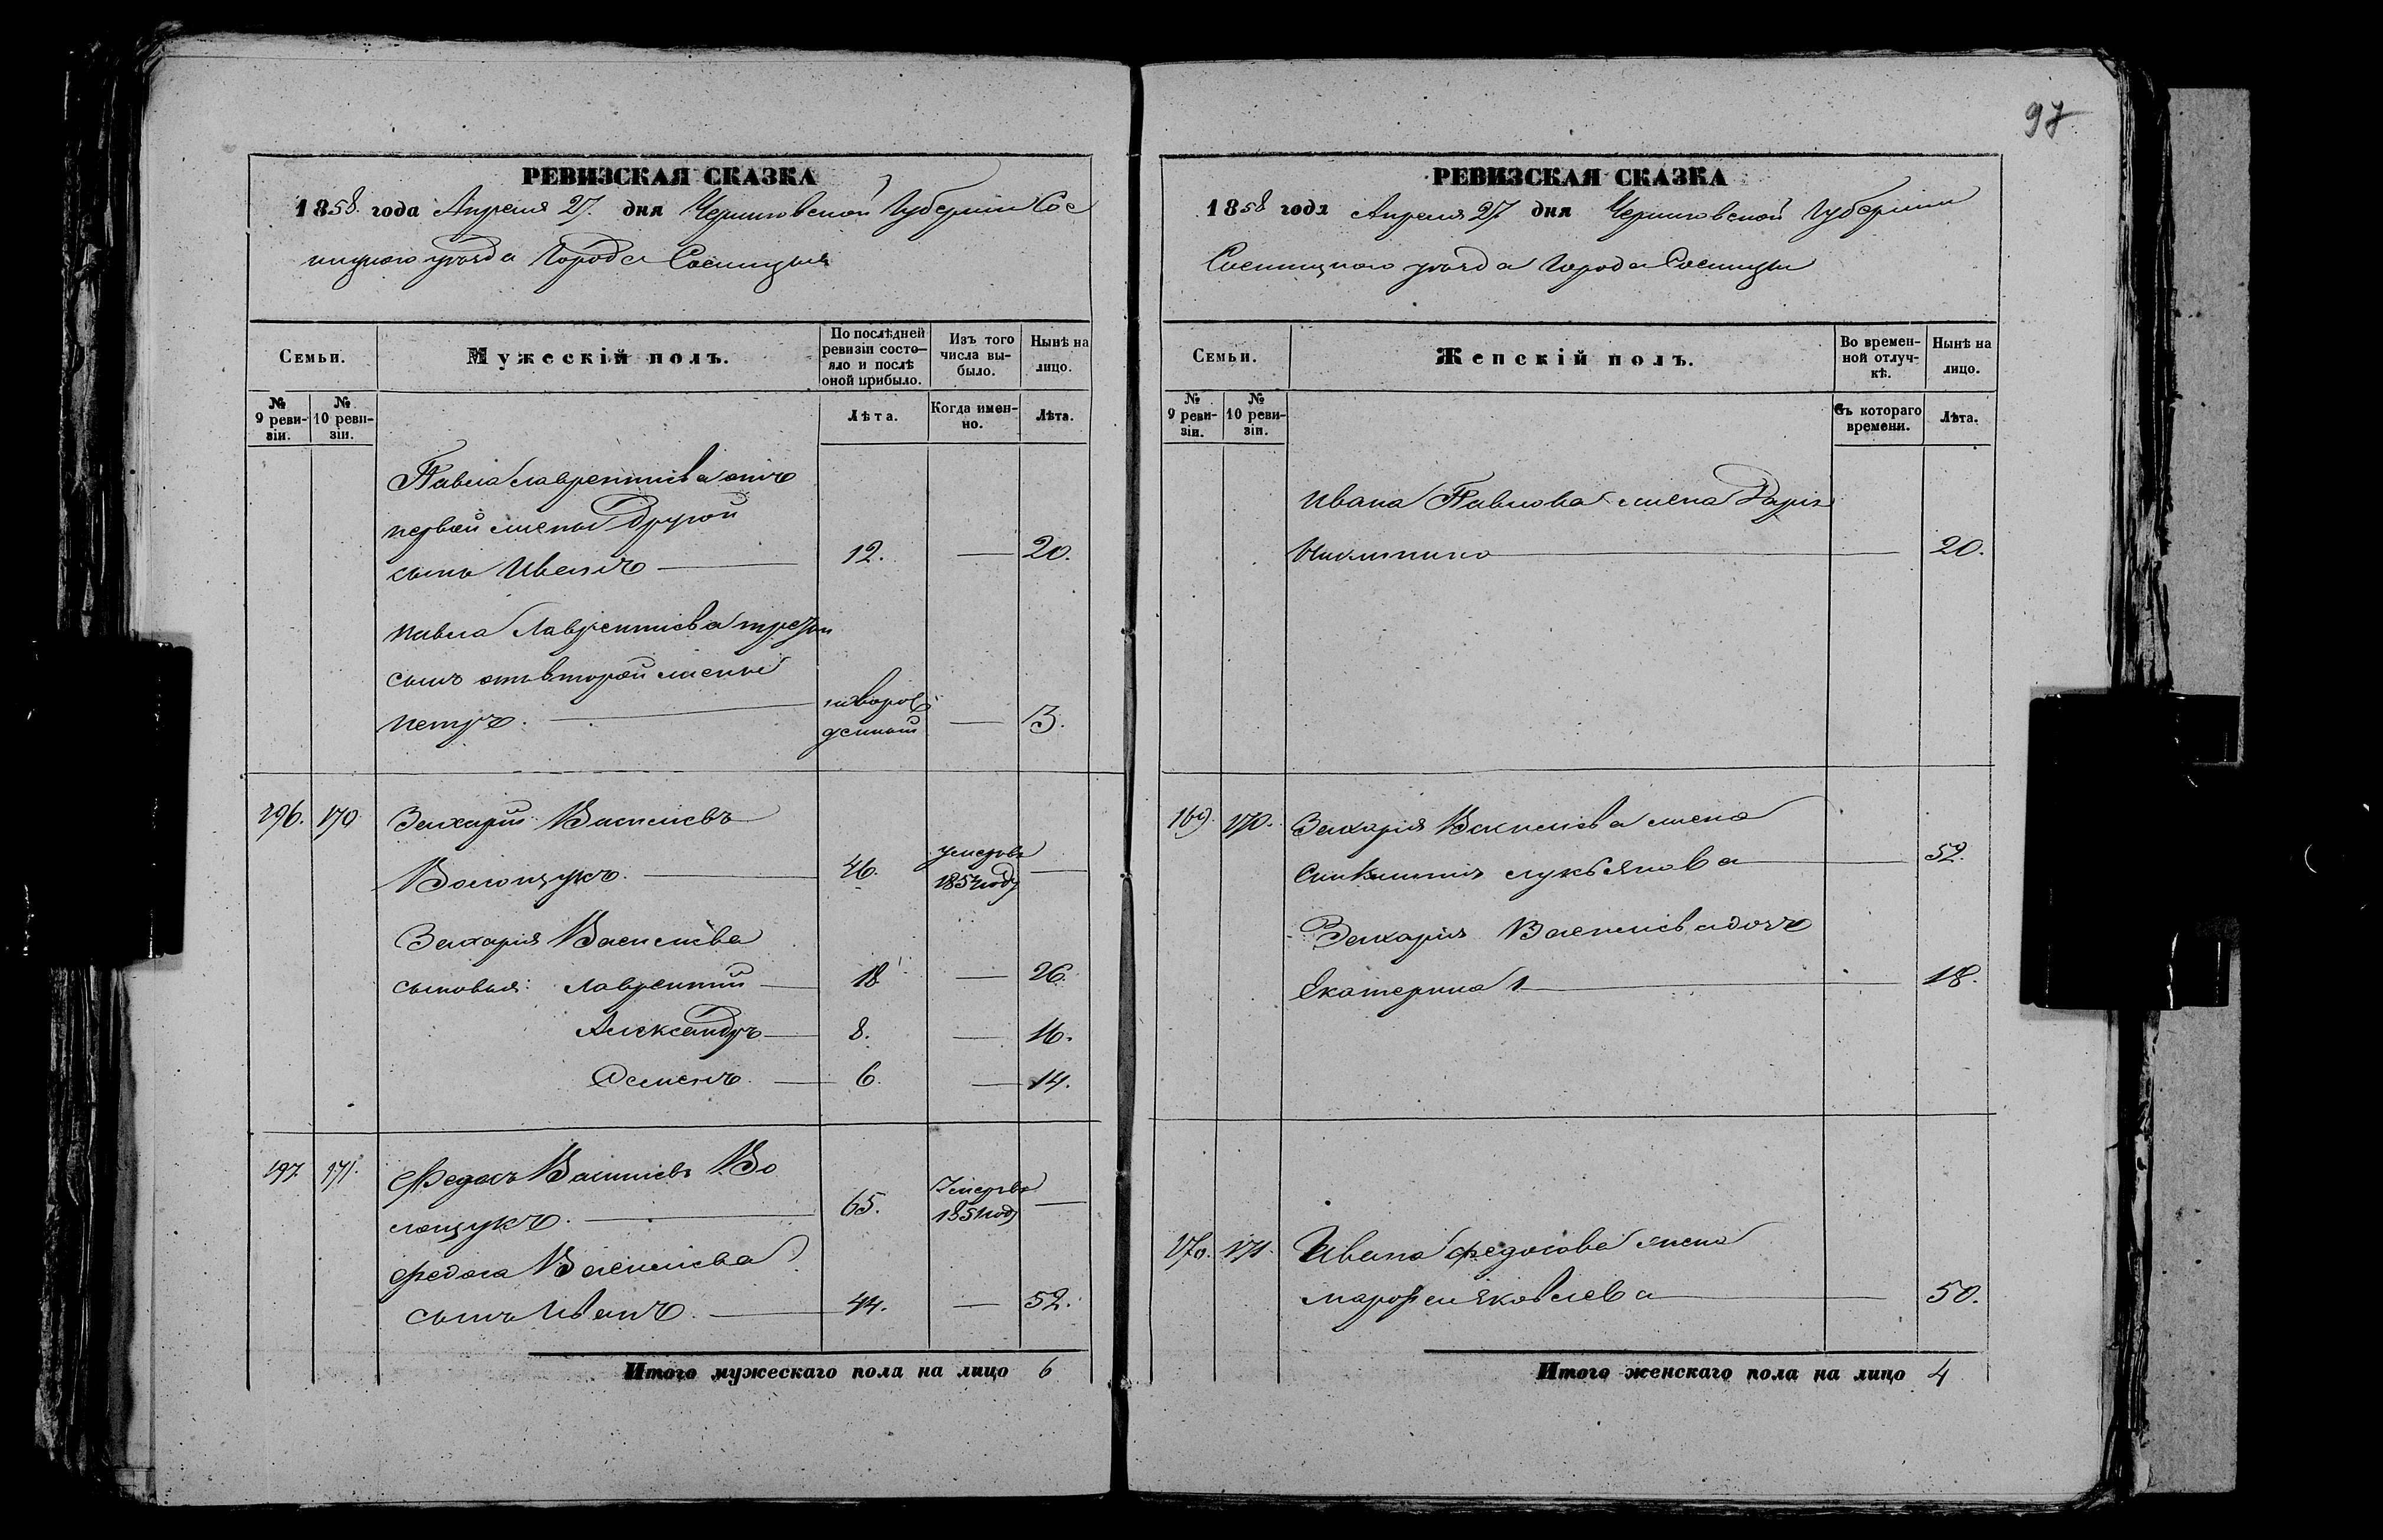 97
РЕВИЗСКАЯ СКАЗКА
1858 года Апреля 27. дня Черниговской Губернии Сос
ницкого уезда Города Сосницы
Семьи.
Мужескій полъ.
По послѣдней ревизіи состояло и послѣ оной прибыло.
Изъ того числа выбыло.
Нынѣ на лицо.
№ 9 ревизіи.
№ 10 ревизіи.
Лѣта.
Когда именно.
Лѣта.
Павла Лаврентиева отъ
первой жены другой
сынъ Иванъ 12. — 20.
Павла Лаврентиева третий
сынъ отъ второй жены
Петръ. новорож
денный — 3.
196. 170 Захарий Василиевъ
Волощукъ. 46. умеръ въ
1854 году —
Захария Василиева
сыновья: Лаврентий 18 — 26.
Александръ 8. — 16.
Семенъ. 6. — 14.
197 171. Федосъ Василиевъ Во
лощукъ. 65. Умеръ въ
1851 году —
Федоса Василиева
сынъ Иванъ. 44. — 52.
Итого мужескаго пола на лицо 6
РЕВИЗСКАЯ СКАЗКА
1858 года Апреля 27 дня Черниговской Губернии
Сосницкого уезда Города Сосницы
Семьи.
Женскій полъ.
Во временной отлучкѣ.
Нынѣ на лицо.
№ 9 ревизіи.
№ 10 ревизіи.
Съ котораго времени.
Лѣта.
Ивана Павлова жена Дария
— 20.
169. 170. Захария Василиева жена
Лукьянова 52.
Захария Василиева дочь
Екатерина 18.
170. 171. Ивана Федосова жена
Марфа Яковлева 50.
Итого женскаго пола на лицо 4